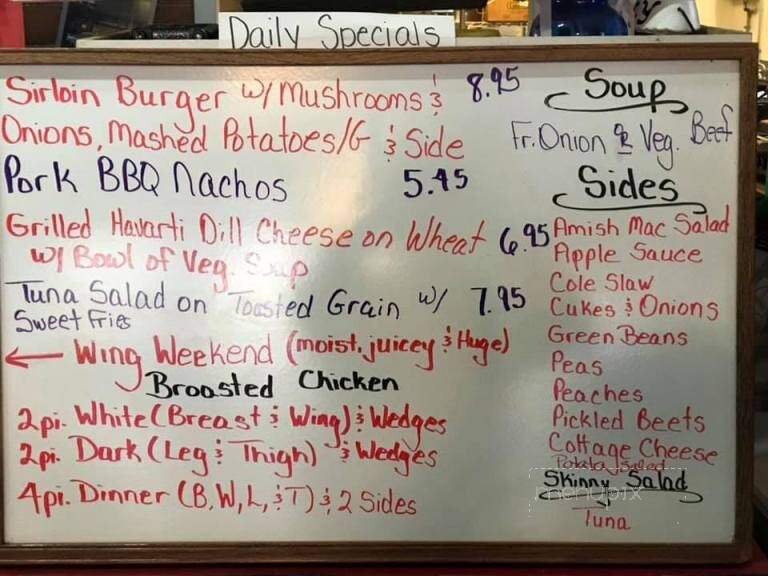 Daily Specials
Sirloin Burger w/ Mushrooms & 8.95
Onions, Mashed Potatoes/G & Side
Pork BBQ Nachos 5.45
Grilled Havarti Dill Cheese on Wheat 6.95
w/ Bowl of Veg. Soup
Tuna Salad on Toasted Grain w/ 7.95
Sweet Fries
← Wing Weekend (moist, juicey & Huge)
Broasted Chicken
2pi. White (Breast & Wing) & Wedges
2pi. Dark (Leg & Thigh) & Wedges
4pi. Dinner (B, W, L, & T) & 2 Sides
Soup
Fr. Onion & Veg. Beef
Sides
Amish Mac Salad
Apple Sauce
Cole Slaw
Cukes & Onions
Green Beans
Peas
Peaches
Pickled Beets
Cottage Cheese
Potato Salad
Skinny Salad
menupix
Tuna